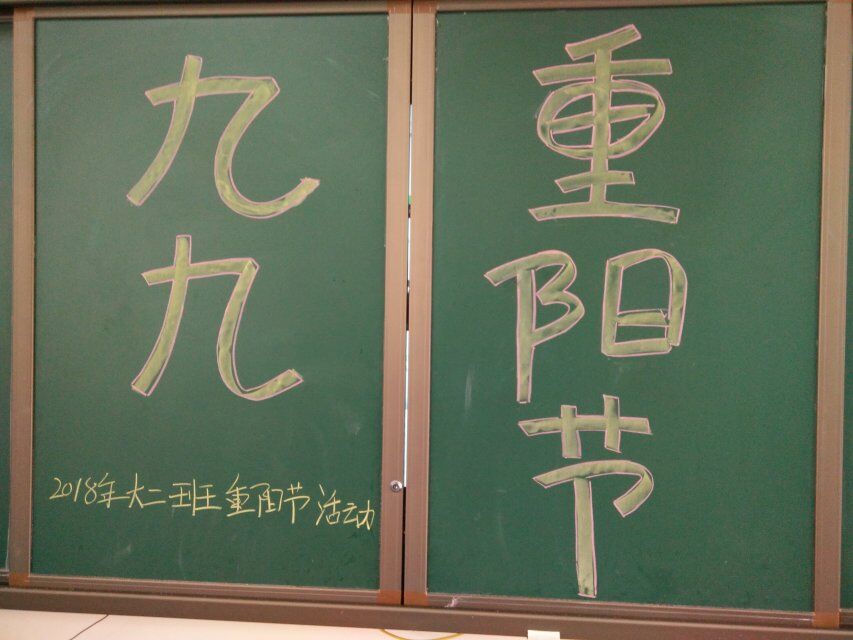 九九
重阳节
2018年大二班重阳节活动